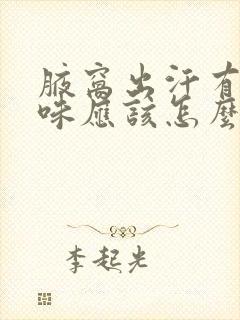 腋窩出汗有
味應該怎麼
李起光